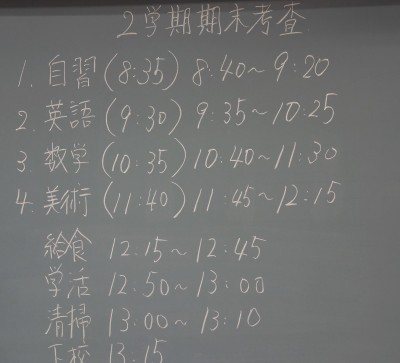 2学期期末考査
1. 自習 (8:35) 8:40～9:20
2. 英語 (9:30) 9:35～10:25
3. 数学 (10:35) 10:40～11:30
4. 美術 (11:40) 11:45～12:15
給食 12:15～12:45
学活 12:50～13:00
清掃 13:00～13:10
下校 13:15